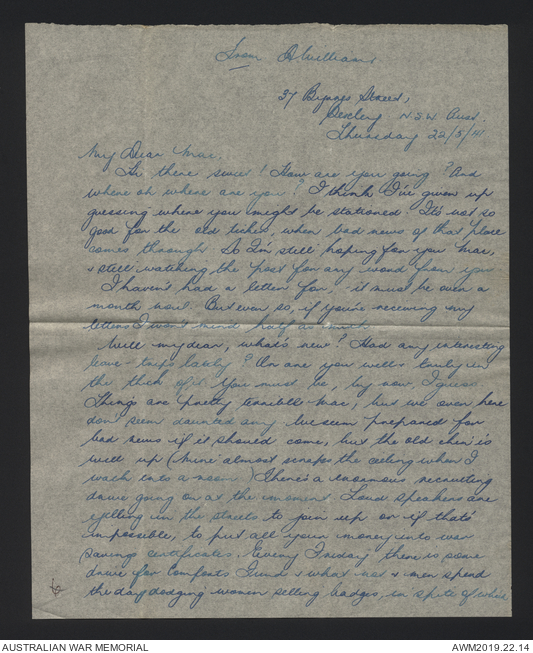 From D Williams
27 Byrnes Street,
Bexley N.S.W. Aust.
Thursday 22/5/41
My Dear Mac,
Hi, there since! How are you going? And
where oh where are you? I think I've given up
guessing where you might be stationed. It's not so
good for the old ticker, when bad news of that place
comes through. So I'm still hoping for you Mac,
& still watching the post for any word from you
I haven't had a letter for, it must be over a
month now. But even so, if you're receiving my
letters I won't mind half as much.
Well my dear, what's new? Had any interesting
leave-trips lately? Or are you well & truly in
the thick of it. You must be, by now, I guess.
Things are pretty terrible Mac, but we over here
don't seem daunted any. We seem prepared for
bad news if it should come, but the old chin is
well up (mine almost scrapes the ceiling when I
walk into a room.) There's a enormous recruiting
drive going on at the moment. Loud speakers are
yelling in the streets to join up or if that's
impossible, to put all your money into war
savings certificates. Every Friday there is some
drive for Comforts Fund & what not & men spend
the day dodging women selling badges, in spite of which
AUSTRALIAN WAR MEMORIAL
AWM2019.22.14